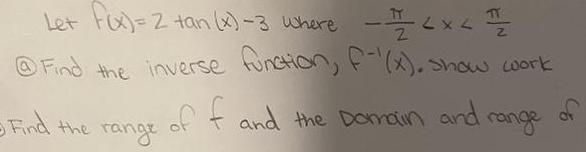 Let f(x) = 2 tan(x) - 3 where -π/2 < x < π/2
ⓐ Find the inverse function, f⁻¹(x). show work
Find the range of f and the Domain and range of